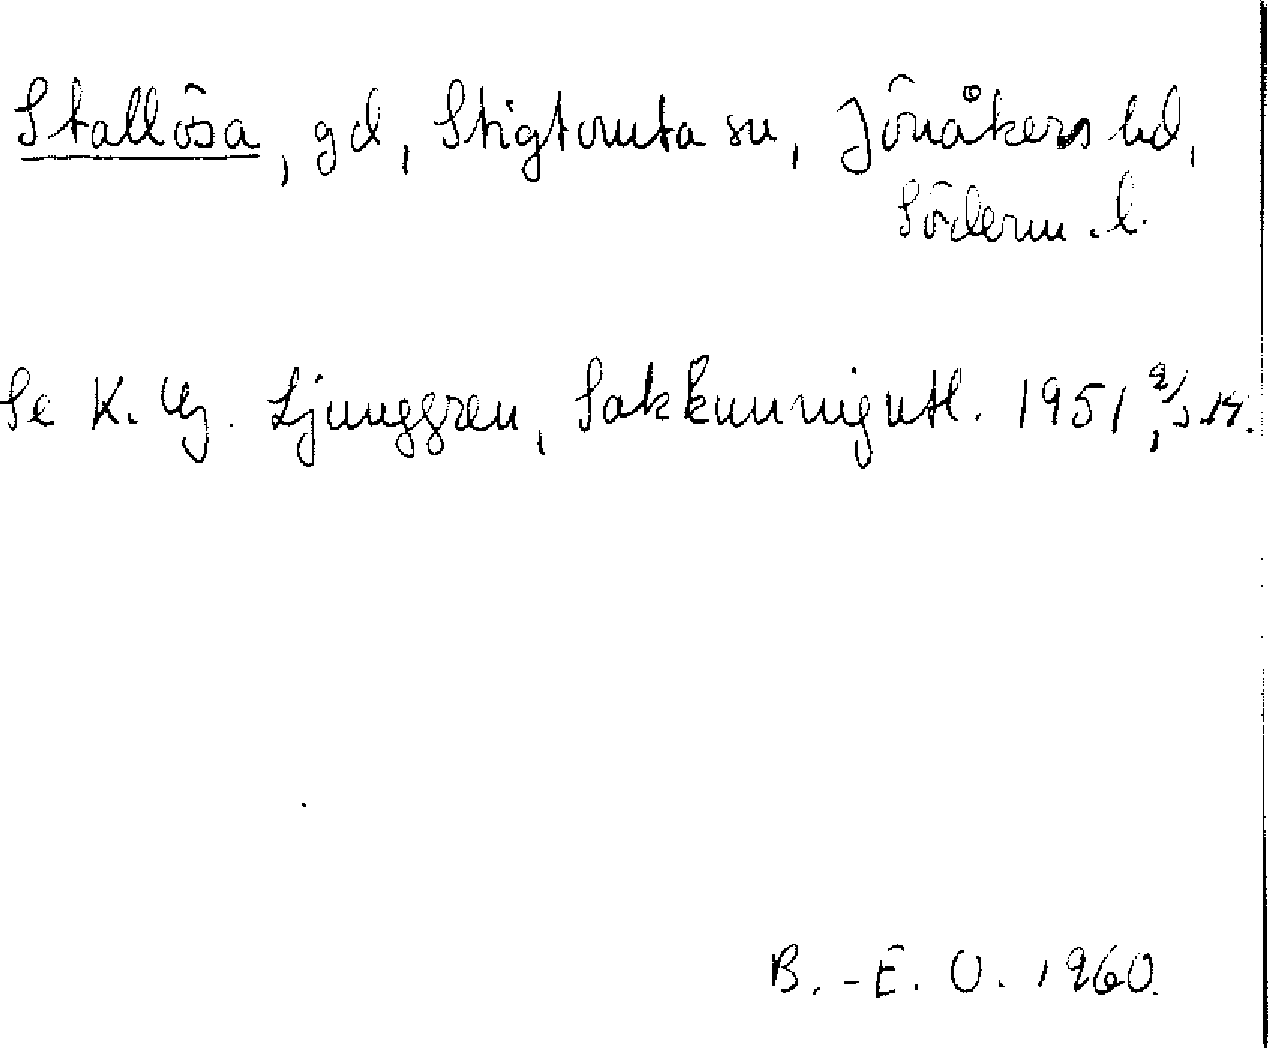 Stallösa, gd, Stigtomta sn, Jönåkers hd,
Söderm. l.
Se K. Hj. Ljunggren, Sakkunnigutl. 1951 2/5, s. 14.
B.-E. O. 1960.